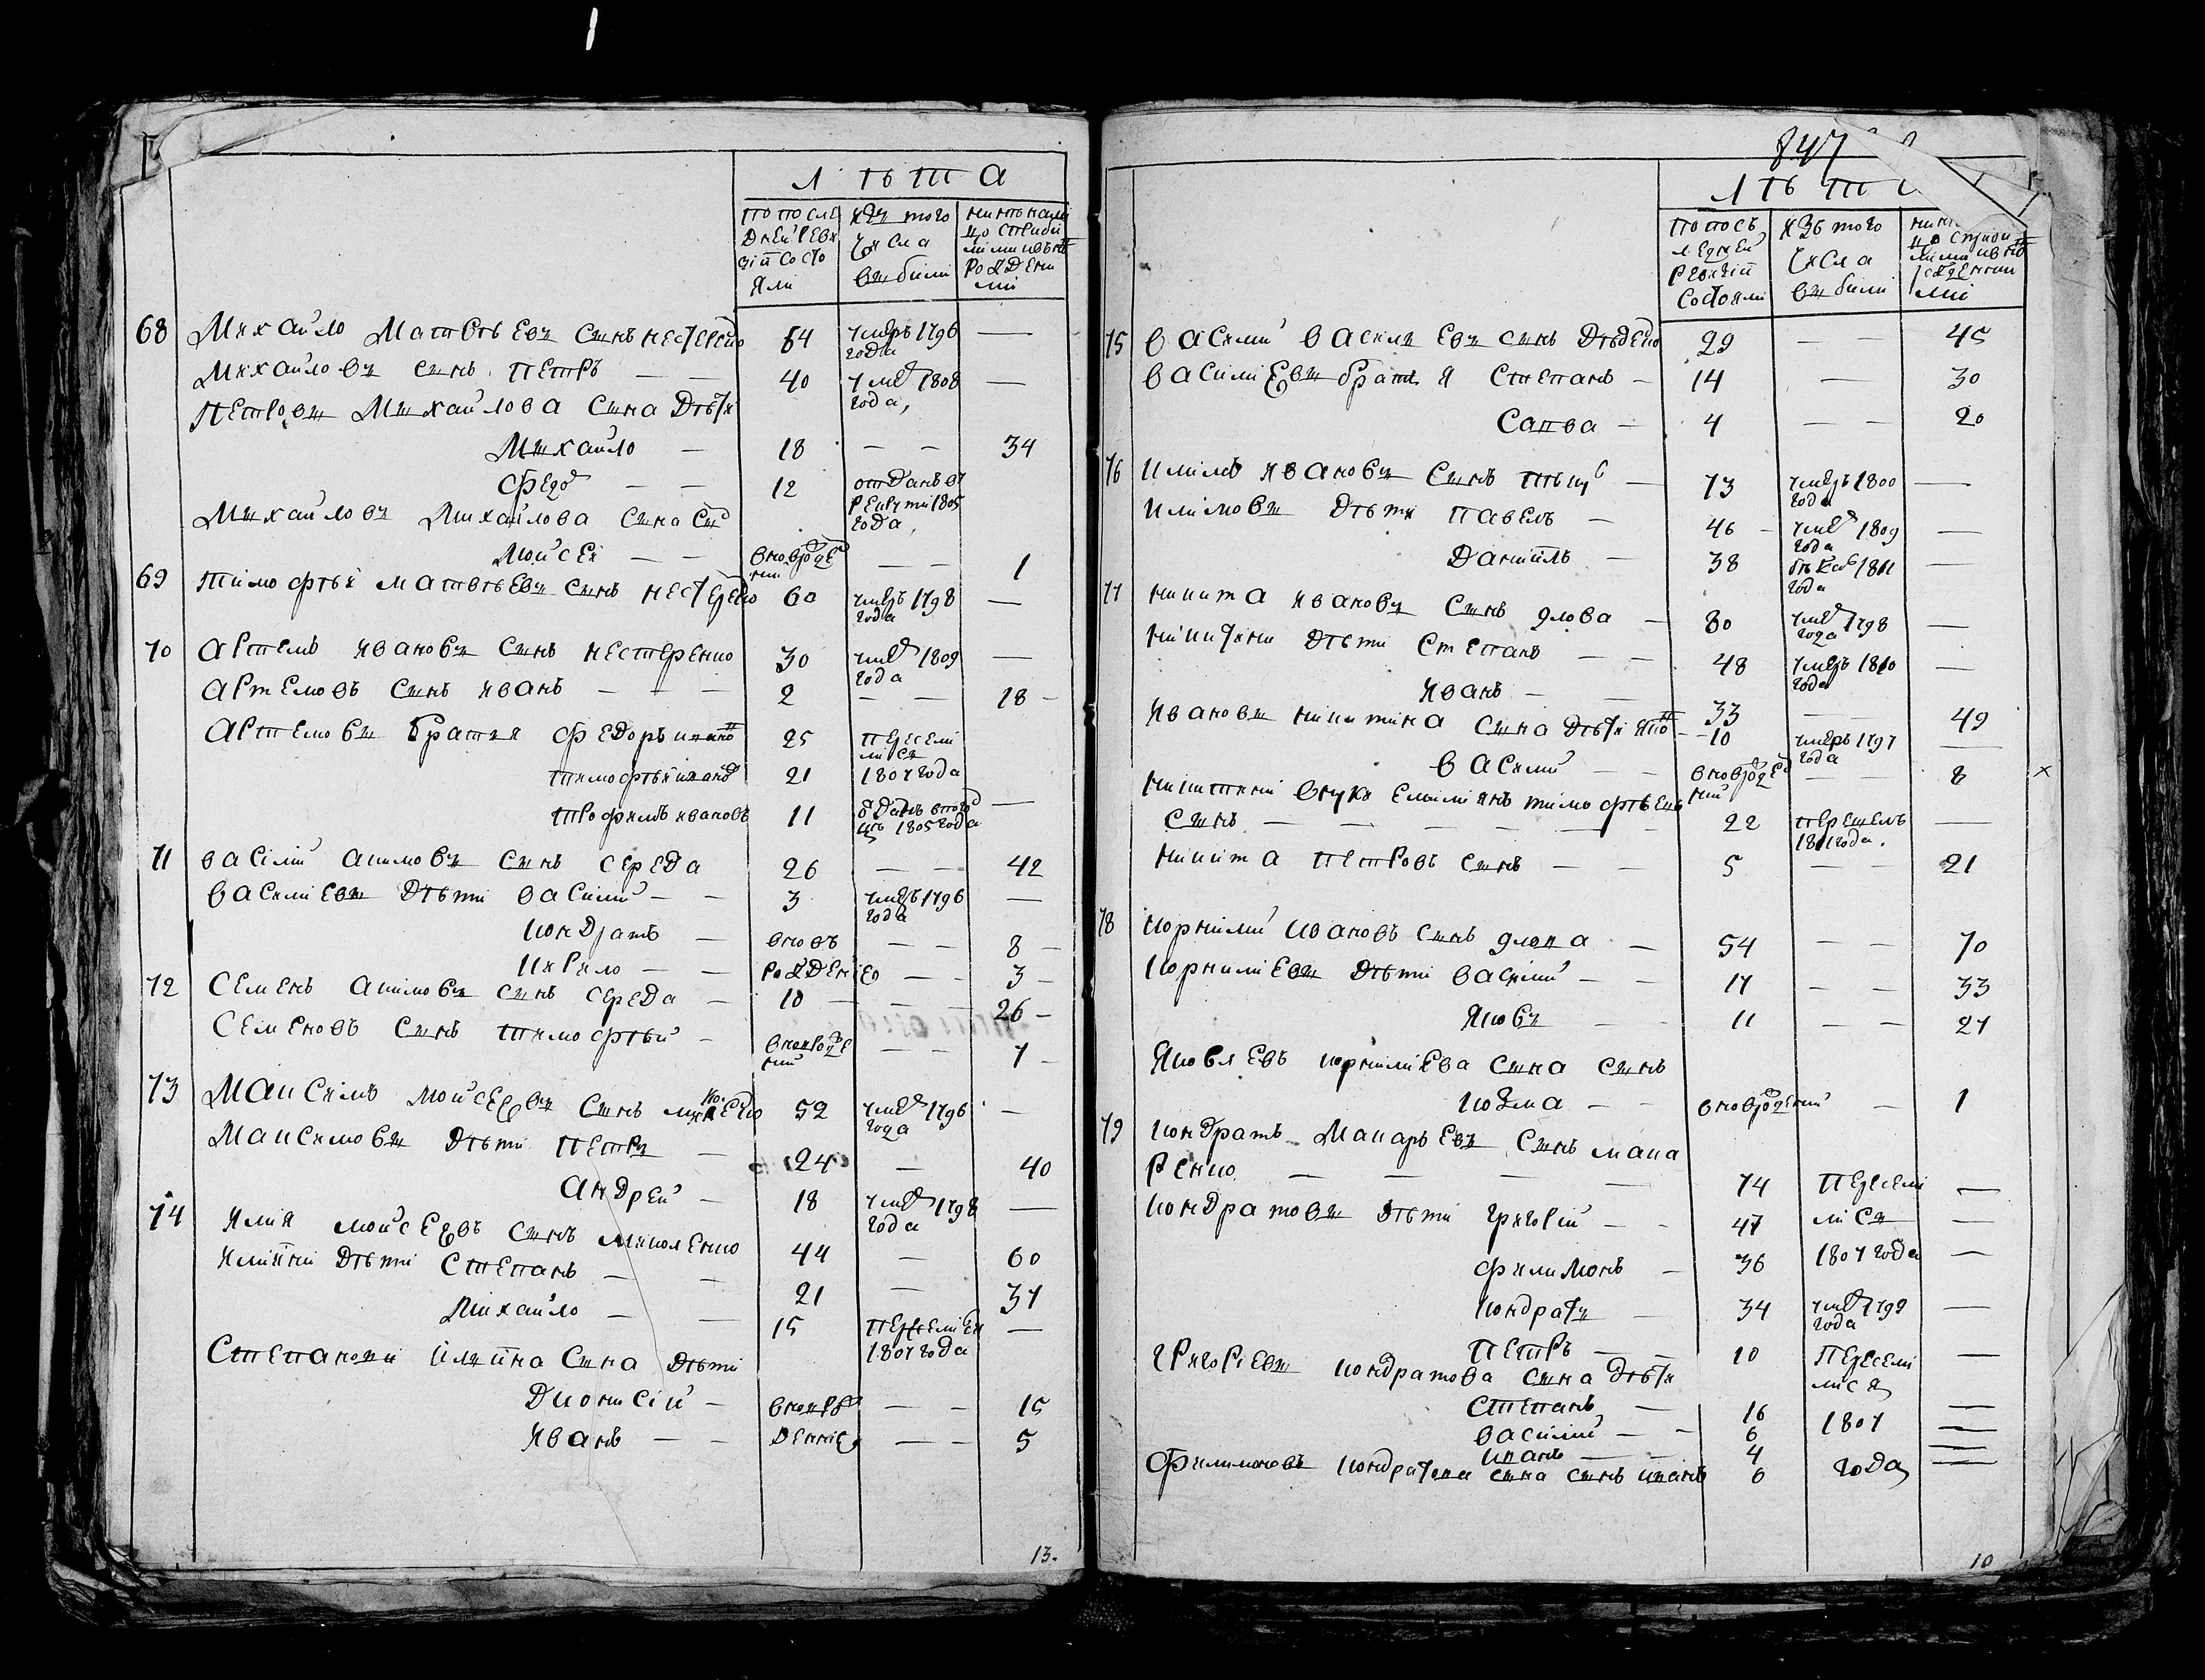 Лѣта
По после
дней реви
зіи состо
яли
изъ того
числа
выбыли
ны нѣ нали
цо съ ново
рожденны
ми
68 Михайло Матвѣевъ сынъ Нестеренко 64 умеръ 1796 года —
Михайловъ сынъ Петръ — — 40 умеръ 1808 года, —
Петровы Михайлова сына дѣти
Михайло — 18 — — 34
Федоръ — — 12 отданъ въ рекруты 1805 года,
Михайловъ Михайлова сына сынъ
Мойсей — — вноврожденный — — 1
69 Тимофѣй Матвѣевъ сынъ Нестеренко 60 умеръ 1798 года —
70 Артемъ Ивановъ сынъ Нестеренко 30 умеръ 1809 года —
Артемовъ сынъ Иванъ — — — 2 — — 18 —
Артемовы братья Федоръ Ивановъ 25 пересели
лись
Тимофѣй Ивановъ 21 1807 года
Трофимъ Ивановъ 11 1805 года —
71 Василий Акимовъ сынъ Середа 26 — — 42
Василиевы дѣти Василий — — 3 умеръ 1796 года —
Кондратъ — вновъ — — 8 —
Кирило — — рожденіе — — 3 —
72 Семенъ Акимовъ сынъ Середа — 10 — — 26 —
Семеновъ сынъ Тимофѣй — вноврожденный — — 7 —
73 Максимъ Мойсеевъ сынъ Миколенко 52 умеръ 1796 года —
Максимовы дѣти Петръ — 24 — 40
Андрей — 18 умеръ 1798 года —
74 Илия Мойсеевъ сынъ Миколенко 44 — 60
Илиини дѣти Степанъ — — 21 — 37
Михайло — — 15 переселился 1807 года —
Степановы Илиина сына дѣти
Дионисій — вноврож — — 15
Иванъ — — денніе — — 5
13.
847
Лѣт
По посъ
ледней
ревизіи
состояли
изъ того
числа
выбыли
75 Василий Василиевъ сынъ Дѣденко 29 — — 45
Василиевы братья Степанъ — 14 — 30
Савва — 4 — — 20
76 Климъ Ивановъ сынъ — 73 умеръ 1800 года —
Климовы дѣти Павелъ — 46 — умеръ 1809 года —
Даніилъ — 38 бѣжалъ 1811 года —
77 Никита Ивановъ сынъ — 80 умеръ 1798 года —
Никитини дѣти Степанъ — — 48 умеръ 1810 года —
Иванъ — — 33 — 49
Ивановы Никитина сына дѣти — 10 умеръ 1797 года —
Василий — — вноврожденный — — 8 ×
Никитини внуки Емилиянъ Тимофѣевъ
сынъ — — — — — — 22 перешелъ 1811 года. —
Никита Петровъ сынъ — — 5 — — 21
78 Корнилий Ивановъ сынъ — 54 — — 70
Корнилиевы дѣти Василий — — 17 — — 33
Яковъ — — 11 — — 27
Яковлевъ Корнилиева сына сынъ
Козма — — вноврожденний — 1
79 Кондратъ Макарьевъ сынъ Мака
ренко — — — — 74 пересели —
Кондратовы дѣти Григорій — — 47 лись —
Филимонъ — 36 1807 года —
Кондратъ — 34 умеръ 1799 года —
Петръ — — 10 пересели
лися —
Григориевы Кондратова сына дѣти
Степанъ — 16 1807 —
Василий — — 6 —
Иванъ — — 4 —
Филимоновъ Кондратова сына сынъ Иванъ 6 года —
10